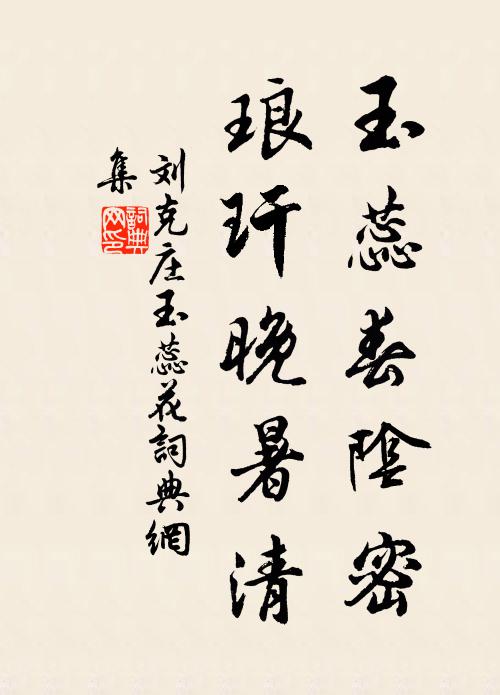 玉蕊春陰密
琅玕晚暑清
刘克庄玉蕊花詞典網
集
詞典網印